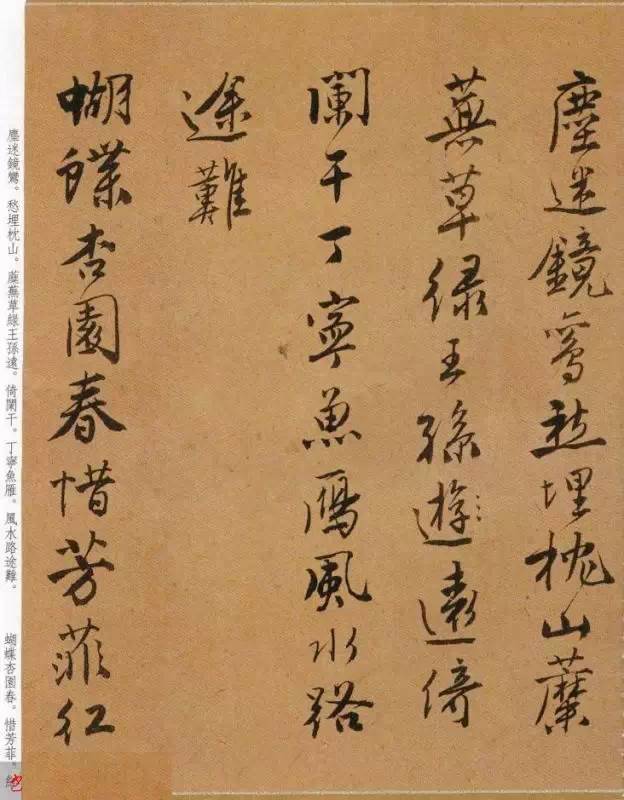 塵迷鏡鸞愁埋枕山蘼
蕪草緑王孫遊遠倚
闌干丁寧魚鴈風水路
途難
蝴蝶杏園春惜芳菲紅
塵迷鏡鸞。愁埋枕山。蘼蕪草緑王孫遠。倚闌干。丁寧魚雁。風水路途難。 蝴蝶杏園春。惜芳菲。